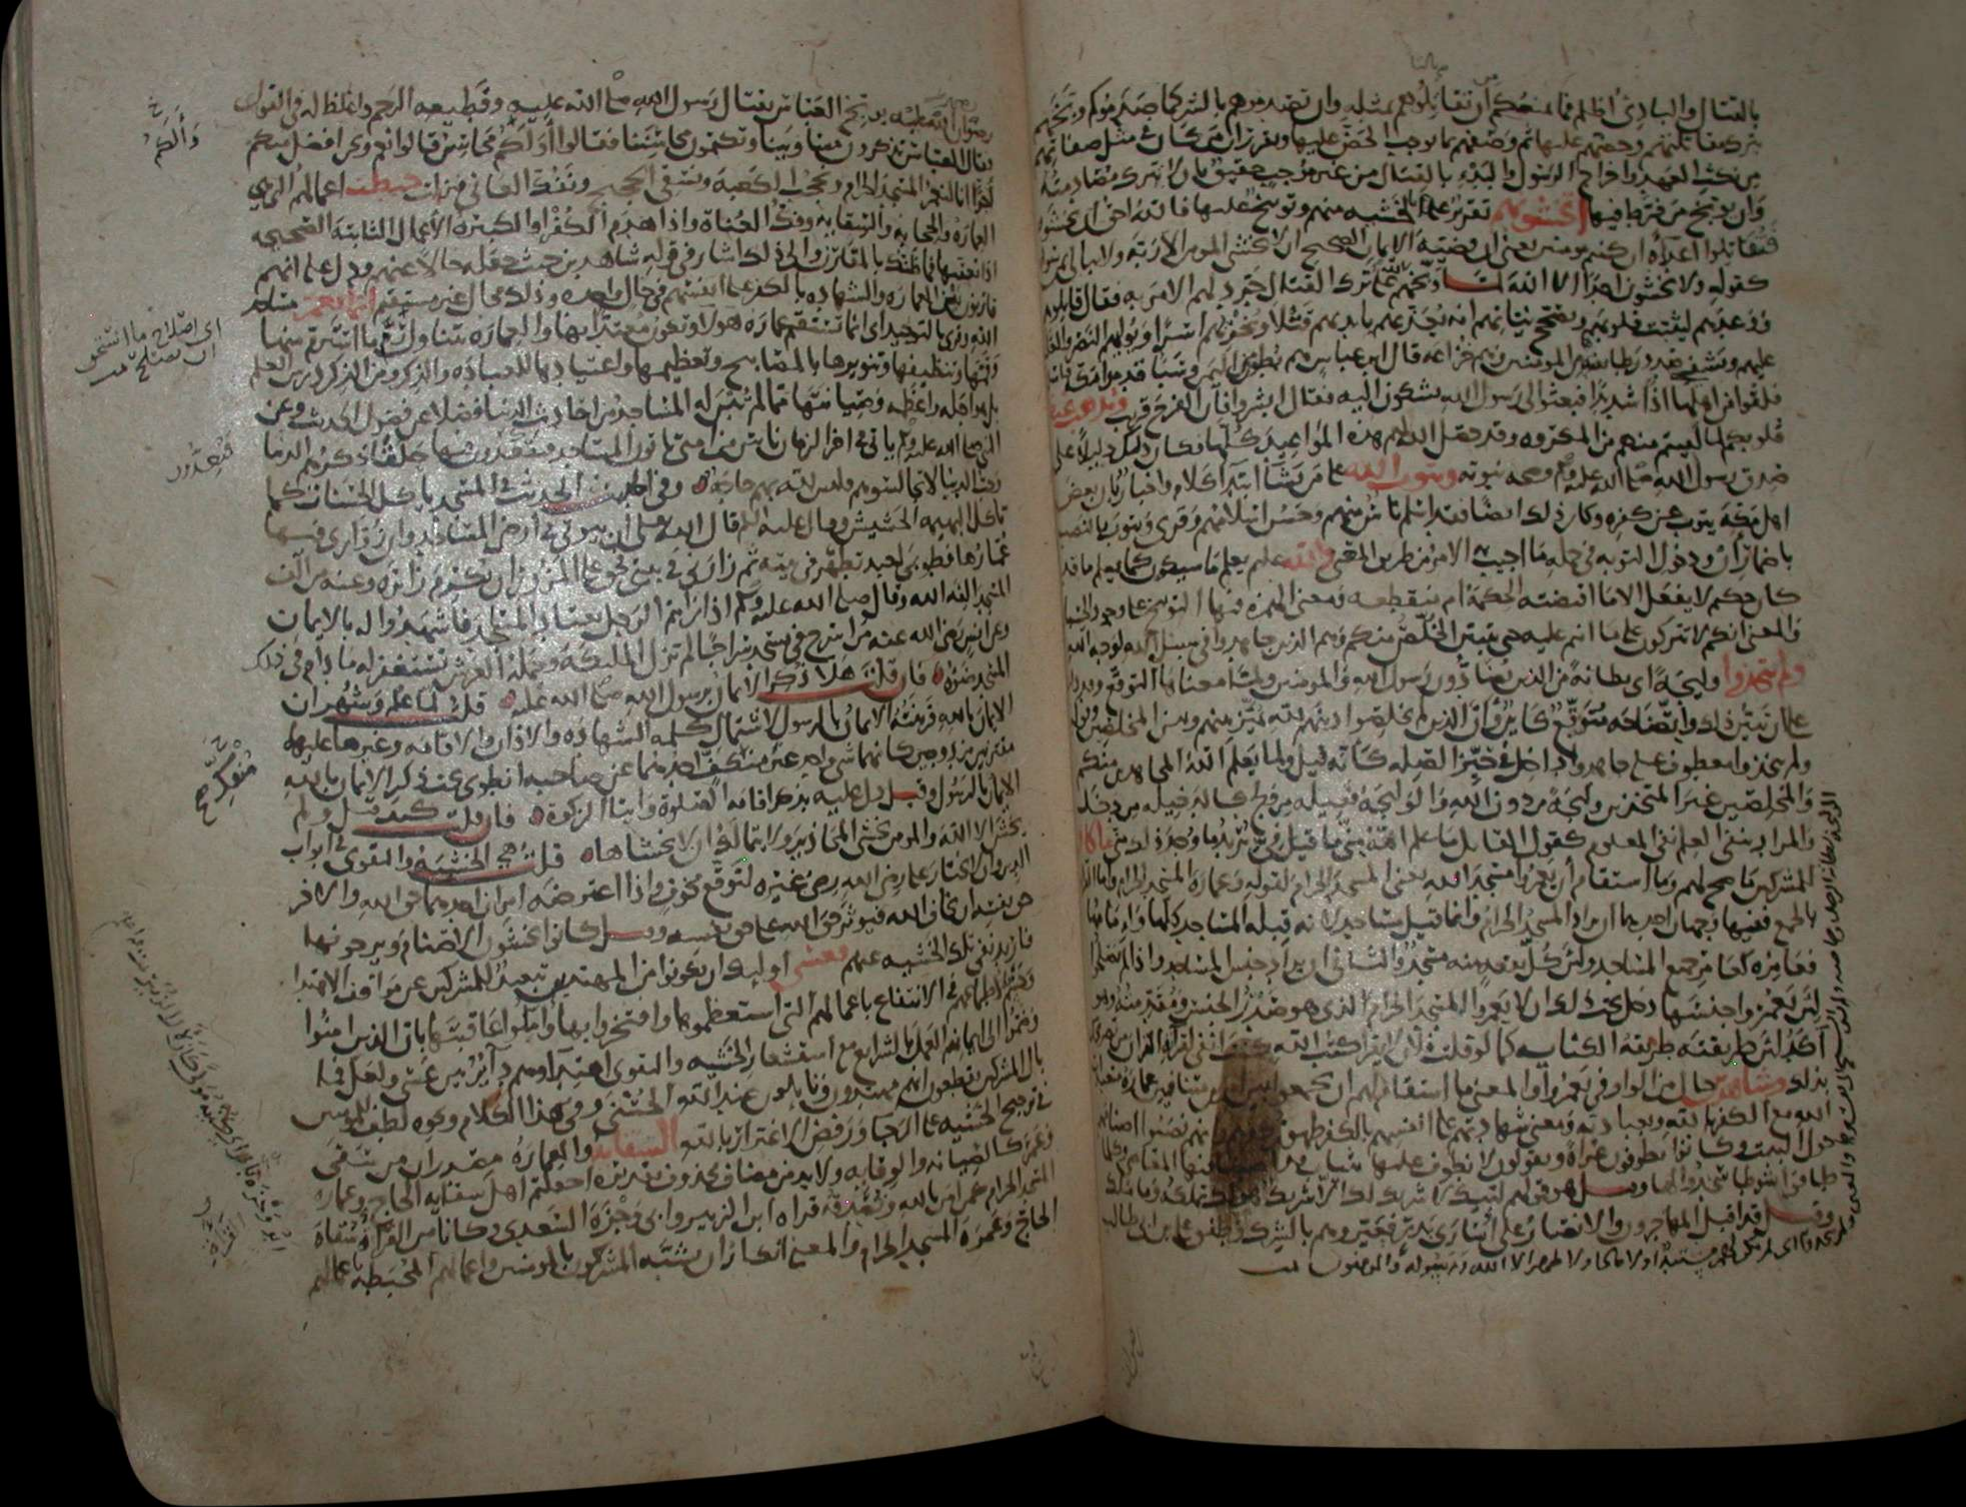 بالقتال والبادئ أظلم فما يمنعكم أن تقاتلوهم بمثله وان تصدموهم بالشر كما صدموكم وبخهم
بترك مقاتلتهم وحضهم عليها ثم وصفهم بما يوجب الحض عليها ويقرر ان من كان في مثل صفاتهم
من نكث العهد واخراج الرسول والبدء بالقتال من غير موجب حقيق بان لا تترك مصادمته
وان يوبخ من فرط فيها أتخشونهم تقرير بالخشية منهم وتوبيخ عليها فالله احق ان تخشوه
فتقاتلوا أعداءه ان كنتم مومنين يعني ان قضية الايمان الصحيح ان لا يخشى المومن الا ربه ولا يبالي بمن سواه
كقوله ولا يخشون احدا الا الله لما وبخهم الله على ترك القتال جرد لهم الامر به فقال قاتلوهم
ووعدهم ليثبت قلوبهم ويصحح نياتهم انه يعذبهم بايديهم قتلا ويخزيهم اسرا ويوليهم النصر والغلبة
عليهم ويشفي صدور طائفة من المومنين وهم خزاعة قال ابن عباس هم بطون من اليمن وسبا قدموا مكة
فلقوا من اهلها اذى شديدا فبعثوا الى رسول الله يشكون اليه فقال ابشروا فان الفرج قريب ويذهب غيظ
قلوبكم لما لقيتم منهم من المكروه وقد حصل الله لهم هذه المواعيد كلها فكان ذلك دليلا على
صدق رسول الله صلى الله عليه وسلم وصحة نبوته ويتوب الله على من يشاء ابتداء كلام واخبار بان بعض
اهل مكة يتوب عن كفره وكان ذلك ايضا فقد اسلم ناس منهم وحسن اسلامهم وقرئ ويتوب بالنصب
باضمار ان ودخول التوبة في جملة ما اجيب به الامر من طريق المعنى والله عليم يعلم ما سيكون كما يعلم ما قد
كان حكيم لا يفعل الا ما اقتضته الحكمة ام منقطعة ومعنى الهمزة فيها التوبيخ على وجود الحسبان
والمعنى انكم لا تتركون على ما انتم عليه حتى يتبين الخلص منكم وهم الذين جاهدوا في سبيل الله لوجه الله
ولم يتخذوا وليجة اي بطانة من الذين يضادون رسول الله والمومنين ولما معناها التوقع وقد دلت
على ان تبين ذلك وايضاحه متوقع كاين وان الذين لم يخلصوا دينهم لله يميز بينهم وبين المخلصين وقوله
ولم يتخذوا معطوف على جاهدوا داخل في حيز الصلة كانه قيل ولما يعلم الله المجاهدين منكم
والمخلصين غير المتخذين وليجة من دون الله والوليجة فعيلة من ولج كالدخيلة من دخل
والمراد بنفي العلم نفي المعلوم كقول القائل ما علم الله مني ما قيل في تريد ما وجد ذلك مني ما كان
للمشركين ما صح لهم وما استقام أن يعمروا مسجد الله يعني المسجد الحرام لقوله وعمارة المسجد الحرام واما القراءة
بالجمع ففيها وجهان احدهما ان يراد المسجد الحرام وانما قيل مساجد لانه قبلة المساجد كلها وإمامها
فعامره كعامر جميع المساجد ولان كل بقعة منه مسجد والثاني ان يراد جنس المساجد واذا لم يصلحوا
لان يعمروا جنسها دخل تحت ذلك ان لا يعمروا المسجد الحرام الذي هو صدر الجنس ومقدمته وهو
آكد لان طريقته طريقة الكناية كما لو قلت فلان لا يقرا كتب الله كنت انفى لقراءة القران من تصريحك
بذلك وشاهدين حال من الواو في يعمروا والمعنى ما استقام لهم ان يجمعوا بين امرين متنافيين عمارة متعبدات
الله مع الكفر بالله وبعبادته ومعنى شهادتهم على انفسهم بالكفر ظهور كفرهم وانهم نصبوا اصنامهم
حول البيت وكانوا يطوفون عراة ويقولون لا نطوف عليها بثياب قد اصبنا فيها المعاصي وكلما
طافوا شوطا سجدوا لها وقيل هو قولهم لبيك لا شريك لك الا شريك هو لك تملكه وما ملك
وقيل قد اقبل المهاجرون والانصار على أسارى بدر فعيروهم بالشرك وطفق علي بن ابي طالب
رضوان الله عليه يوبخ العباس بقتال رسول الله صلى الله عليه وقطيعه الرحم واغلظ له في القول
فقال العباس تذكرون مساوينا وتكتمون محاسننا فقالوا أولكم محاسن قالوا نعم ونحن افضل منكم
أجرا انا لنعمر المسجد الحرام ونحجب الكعبة ونسقي الحجيج ونفك العاني فنزلت حبطت اعمالهم التي هي
العمارة والحجابة والسقاية وفك العناة واذا هدم الكفر او الكبيرة الأعمال الثابتة الصحيحة
اذا تعقبها فما ظنك بالمقارن والى ذلك اشار في قوله شاهدين حيث جعله حالا عنهم ودل على انهم
قارنون بين العمارة والشهادة بالكفر على انفسهم في حال واحدة وذلك محال غير مستقيم انما يعمر مساجد
الله وقرئ بالتوحيد اي انما تستقيم عمارة هولاء وتكون معتدا بها والعمارة تتناول رم ما استرم منها
وقمها وتنظيفها وتنويرها بالمصابيح وتعظيمها واعتيادها للعبادة والذكر ومن الذكر درس العلم
بل هو اجله واعظمه وصيانتها مما لم تبن له المساجد من احاديث الدنيا فضلا عن فضول الحديث وعن
النبي صلى الله عليه وسلم ياتي في اخر الزمان ناس من امتي ياتون المساجد فيقعدون فيها حلقا ذكرهم الدنيا
وحب الدنيا لا تجالسوهم فليس لله بهم حاجة وفي الحديث الحديث في المسجد ياكل الحسنات كما
تاكل البهيمة الحشيش وقال عليه السلم قال الله تعالى ان بيوتي في ارضي المساجد وان زواري فيها
عمارها فطوبى لعبد تطهر في بيته ثم زارني في بيتي فحق على المزور ان يكرم زائره وعنه من الف
المسجد الفه الله وقال صلى الله عليه وسلم اذا رايتم الرجل يعتاد المساجد فاشهدوا له بالايمان
وعن انس رضي الله عنه من اسرج في مسجد سراجا لم تزل المليكة وحملة العرش تستغفر له ما دام في ذلك
المسجد ضوءه فان قلت هلا ذكر الايمان برسول الله صلى الله عليه قلت لما علم وشهر ان
الايمان بالله قرينته الايمان بالرسول لاشتمال كلمة الشهادة والاذان والاقامة وغيرها عليهما
مقترنين مزدوجين كانهما شي واحد غير منفك احدهما عن صاحبه انطوى تحت ذكر الايمان بالله
الايمان بالرسول وقيل دل عليه بذكر اقامة الصلوة وايتاء الزكوة فان قلت كيف قيل ولم
يخش الا الله والمومن يخشى المحاذير ولا يتمالك ان لا يخشاها قلت هي الخشية والتقوى في ابواب
الدين وان لا يختار على رضى الله رضى غيره لتوقع مخوف واذا اعترضه امران احدهما حق الله والاخر
حق نفسه ان يخاف الله فيوثر حق الله على حق نفسه وقيل كانوا يخشون الاصنام ويرجونها
فاريد نفي تلك الخشية عنهم فعسى اوليك ان يكونوا من المهتدين تبعيد للمشركين عن مواقف الاهتداء
وحسم لاطماعهم في الانتفاع باعمالهم التي استعظموها وافتخروا بها وأملوا عاقبتها بان الذين امنوا
وضموا الى ايمانهم العمل بالشرايع مع استشعار الخشية والتقوى اهتداؤهم دائر بين عسى ولعل فما
بال المشركين يقطعون انهم مهتدون ونايلون عند الله الحسنى وفي هذا الكلام ونحوه لطف للمومنين
في ترجيح الخشية على الرجا ورفض الاغترار بالله السقاية والعمارة مصدران من سقى
وعمر كالصيانة والوقاية ولا بد من مضاف محذوف تقديره اجعلتم اهل سقاية الحاج وعمارة
المسجد الحرام كمن امن بالله وتصدقه قراة ابن الزبير وابي وجزة السعدي وكان من القراء سقاة
الحاج وعمرة المسجد الحرام والمعنى انكار ان تشبه المشركون بالمومنين واعمالهم المحبطة باعمالهم
وألكم
اي اصلاح ما استحق
ان يصلح تمت
فيقعدون
منفك صح